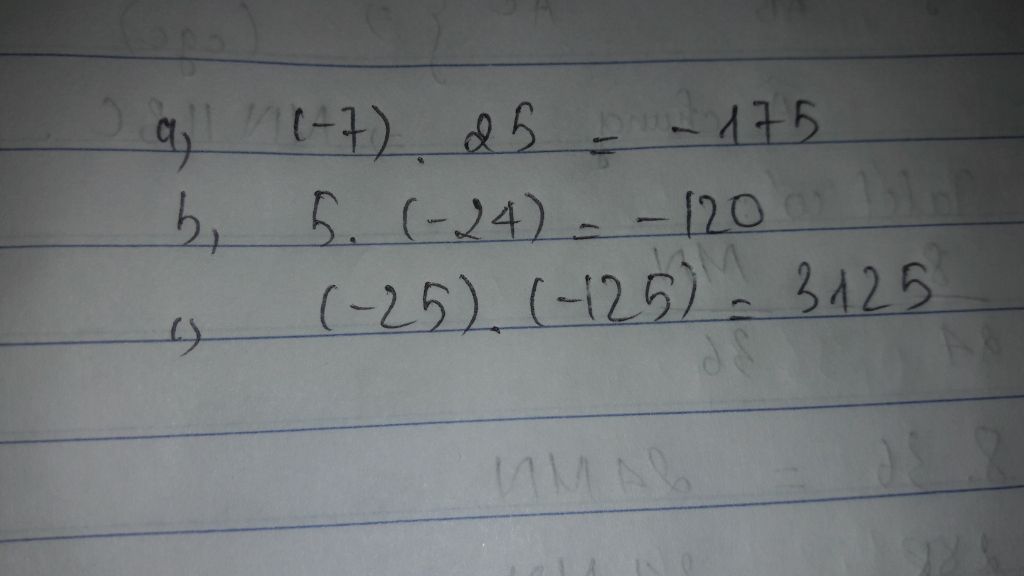 a, (-7) . 25 = -175
b, 5. (-24) = -120
c, (-25) . (-125) = 3125